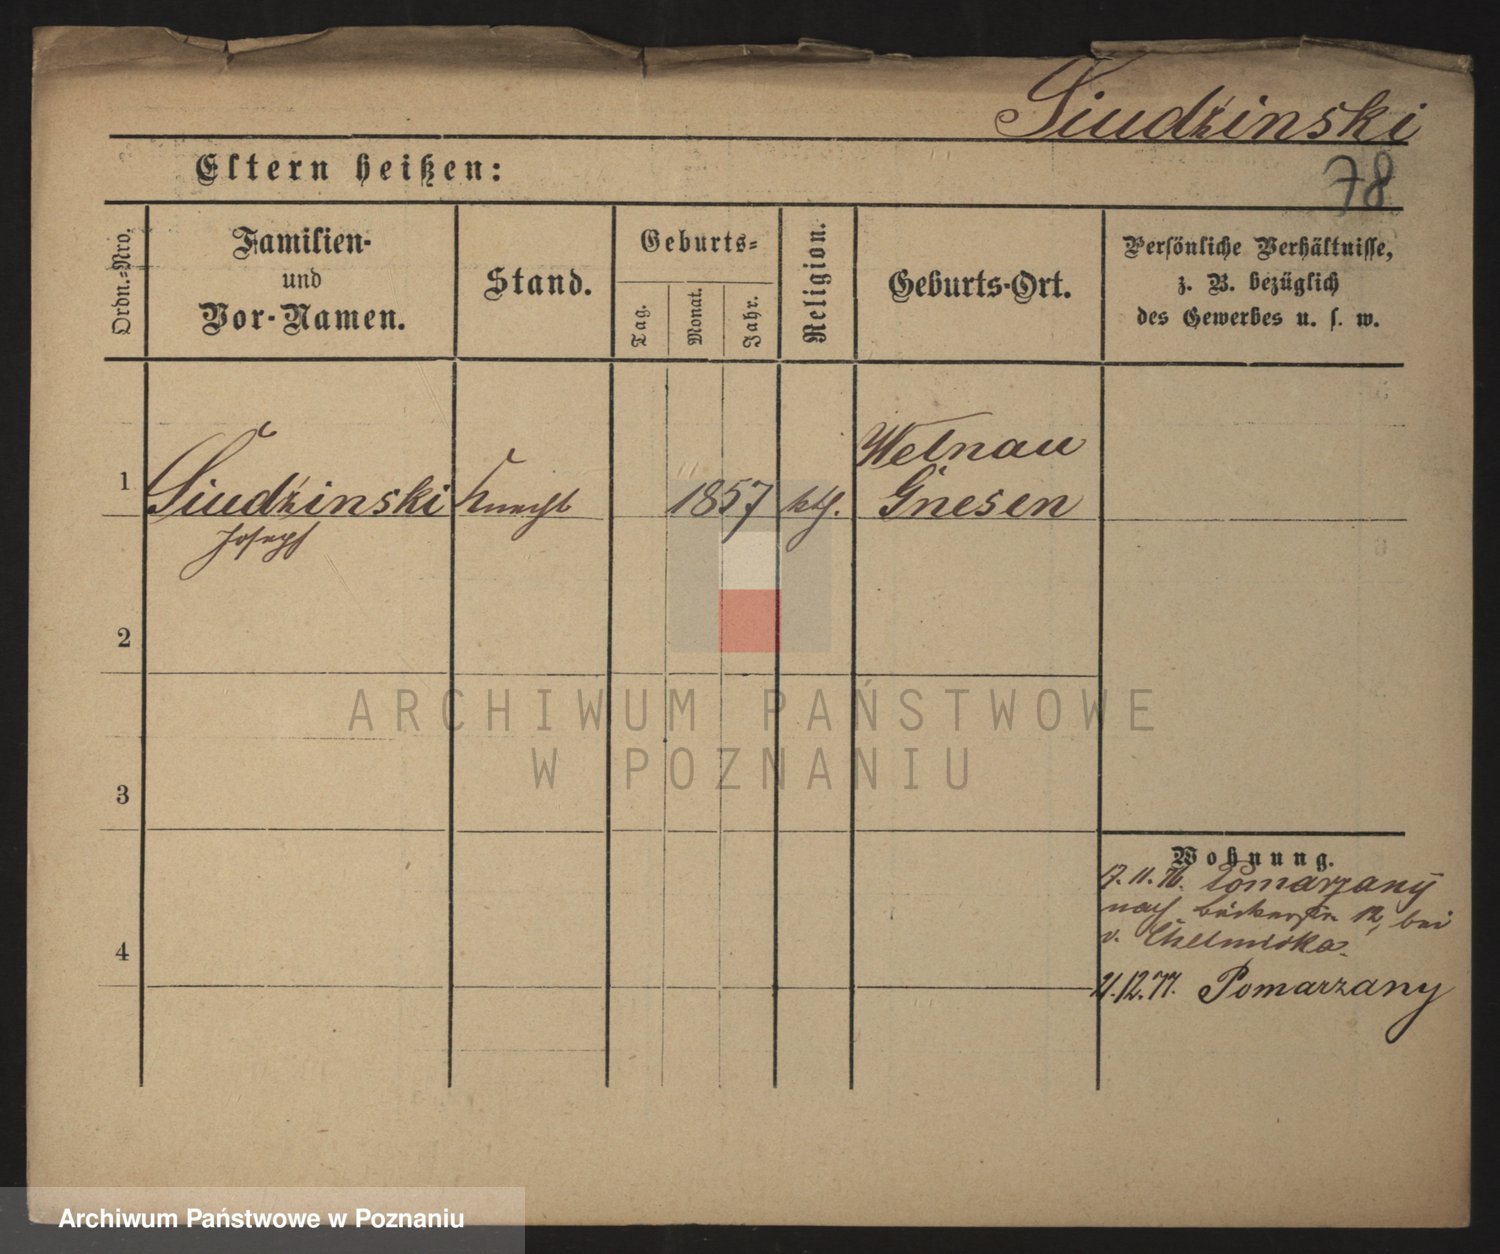 Siudziński
78
Eltern heißen:
Ordn.-Nro.
Familien-
und
Vor-Namen.
Stand.
Geburts-
Tag.
Monat.
Jahr.
Religion.
Geburts-Ort.
Persönliche Verhältnisse,
z. B. bezüglich
des Gewerbes u. s. w.
1
Siudzinski
Joseph
Knecht
1857
kth.
Welnau
Gnesen
2
3
4
Wohnung.
17.11.76. Pomarzany
nach Bäckerstr. 12, bei
v. Chelmicka.
21.12.77. Pomarzany
ARCHIWUM PAŃSTWOWE
W POZNANIU
Archiwum Państwowe w Poznaniu